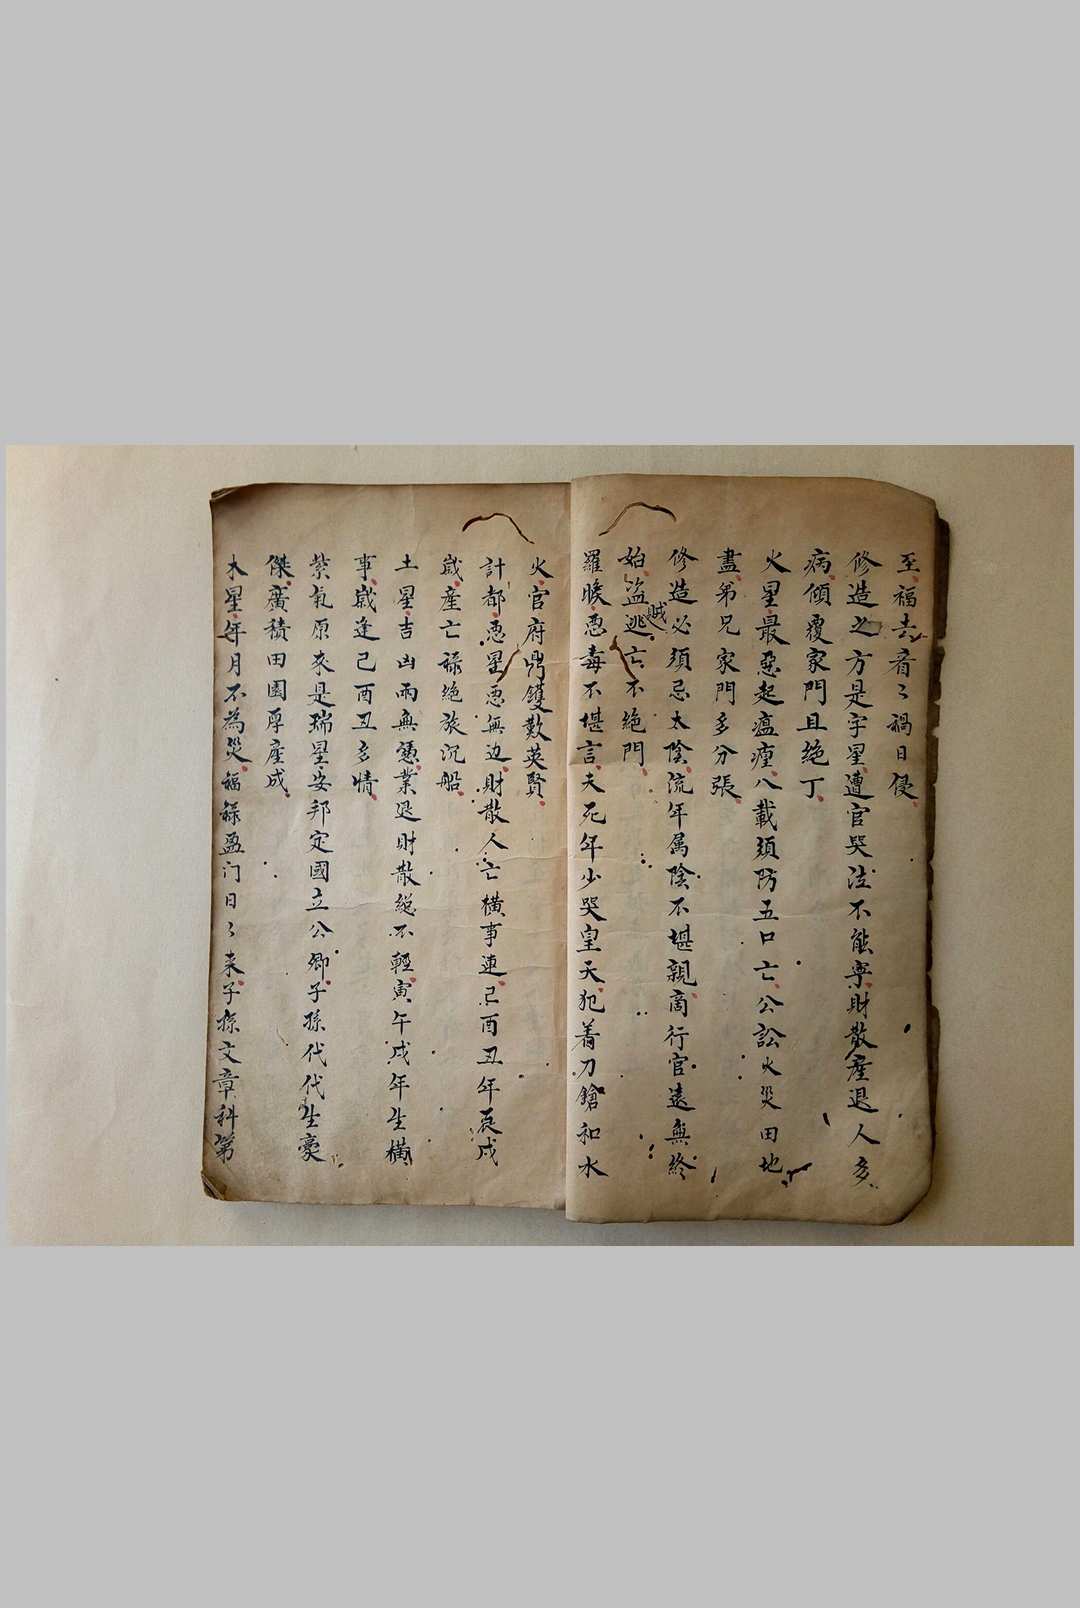 至福去看〻禍日侵
修造之方是孛星遭官哭泣不能寧財散産退人多
病傾覆家門且绝丁
火星最惡起瘟瘽八載須防五口亡公訟火災田地
盡弟兄家門多分張
修造必須忌太陰流年属陰不堪親商行官遠無終
始盗賊逃亡不絕門
羅睺悪毒不堪言夭死年少哭皇天犯着刀鎗和水
火官府鼎鑊歎英賢
計都悪星悪無边財散人亡橫事連己酉丑年辰戌
歲産亡祿絕旅沉船
土星吉凶兩無憑業退財散總不輕寅午戌年生橫
事歲逢己酉丑多情
紫氣原來是瑞星安邦定國立公卿子孫代代生豪
傑廣積田園厚産成
木星年月不為災福祿盈门日〻来子孫文章科第